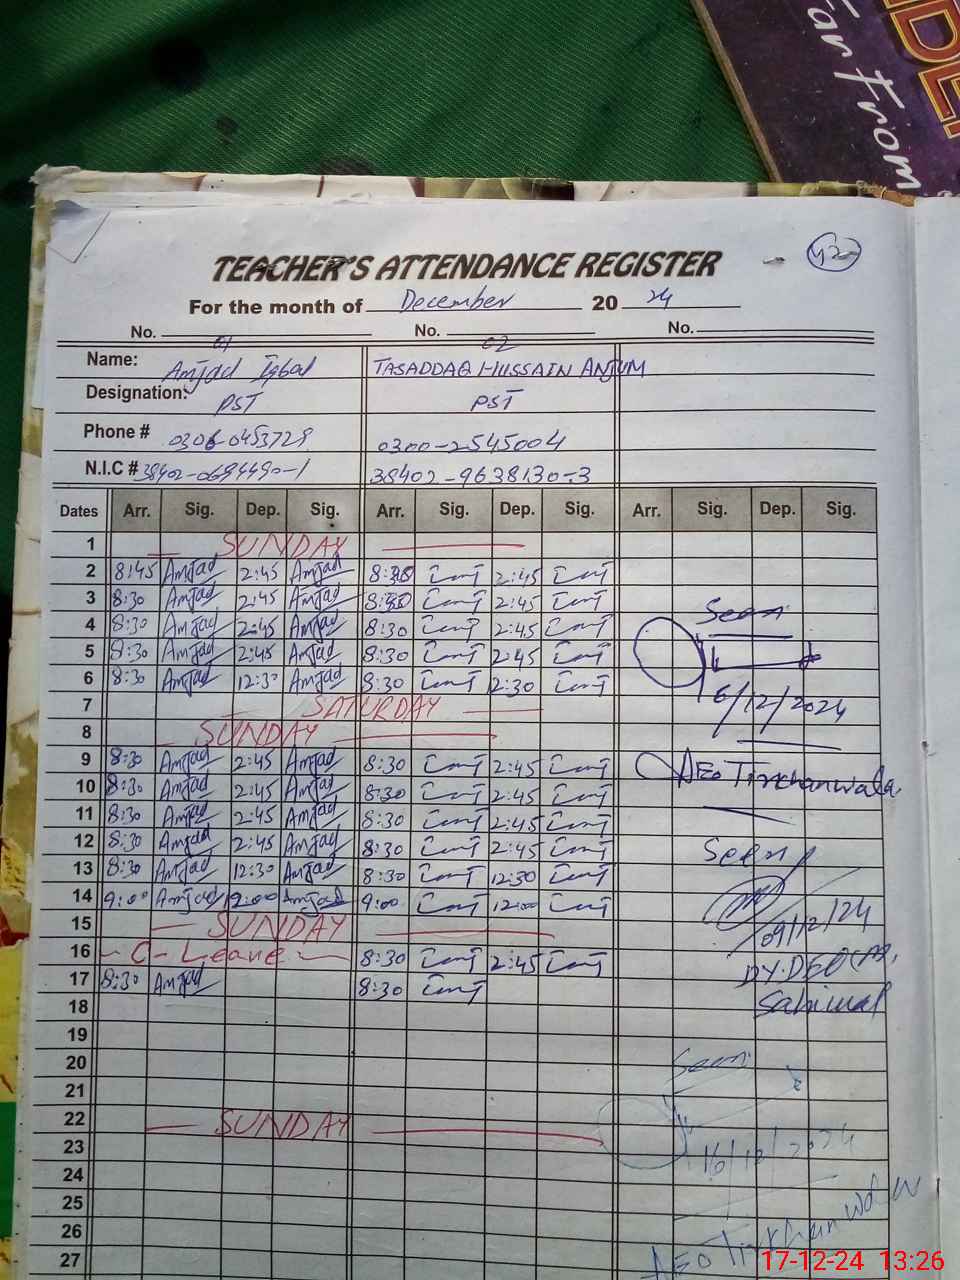 DE
Far From
42
TEACHER'S ATTENDANCE REGISTER
For the month of December 2024
No. 01 No. 02 No.
Name: Amjad Iqbal TASADDAQ HUSSAIN ANJUM
Designation: PST PST
Phone # 0306-0453729 0300-2545004
N.I.C # 38402-0694490-1 38402-9638130-3
Dates Arr. Sig. Dep. Sig. Arr. Sig. Dep. Sig. Arr. Sig. Dep. Sig.
1 SUNDAY
2 8:45 Amjad 2:45 Amjad 8:30 2:45
3 8:30 Amjad 2:45 Amjad 8:30 2:45
4 8:30 Amjad 2:45 Amjad 8:30 2:45 Seen
5 8:30 Amjad 2:45 Amjad 8:30 2:45
6 8:30 Amjad 12:30 Amjad 8:30 12:30
7 SATURDAY 6/12/2024
8 SUNDAY
9 8:30 Amjad 2:45 Amjad 8:30 2:45 AEO Tirkhanwala
10 8:30 Amjad 2:45 Amjad 8:30 2:45
11 8:30 Amjad 2:45 Amjad 8:30 2:45
12 8:30 Amjad 2:45 Amjad 8:30 2:45 Seen
13 8:30 Amjad 12:30 Amjad 8:30 12:30
14 9:00 Amjad 12:00 Amjad 9:00 12:00
15 SUNDAY 09/12/24
16 C-Leave 8:30 2:45 DY.DEO(M),
17 8:30 Amjad 8:30 Sahiwal
18
19
20 Seen
21
22 SUNDAY
23 16/12/2024
24
25
26 AEO Tirkhanwala
27
17-12-24 13:26